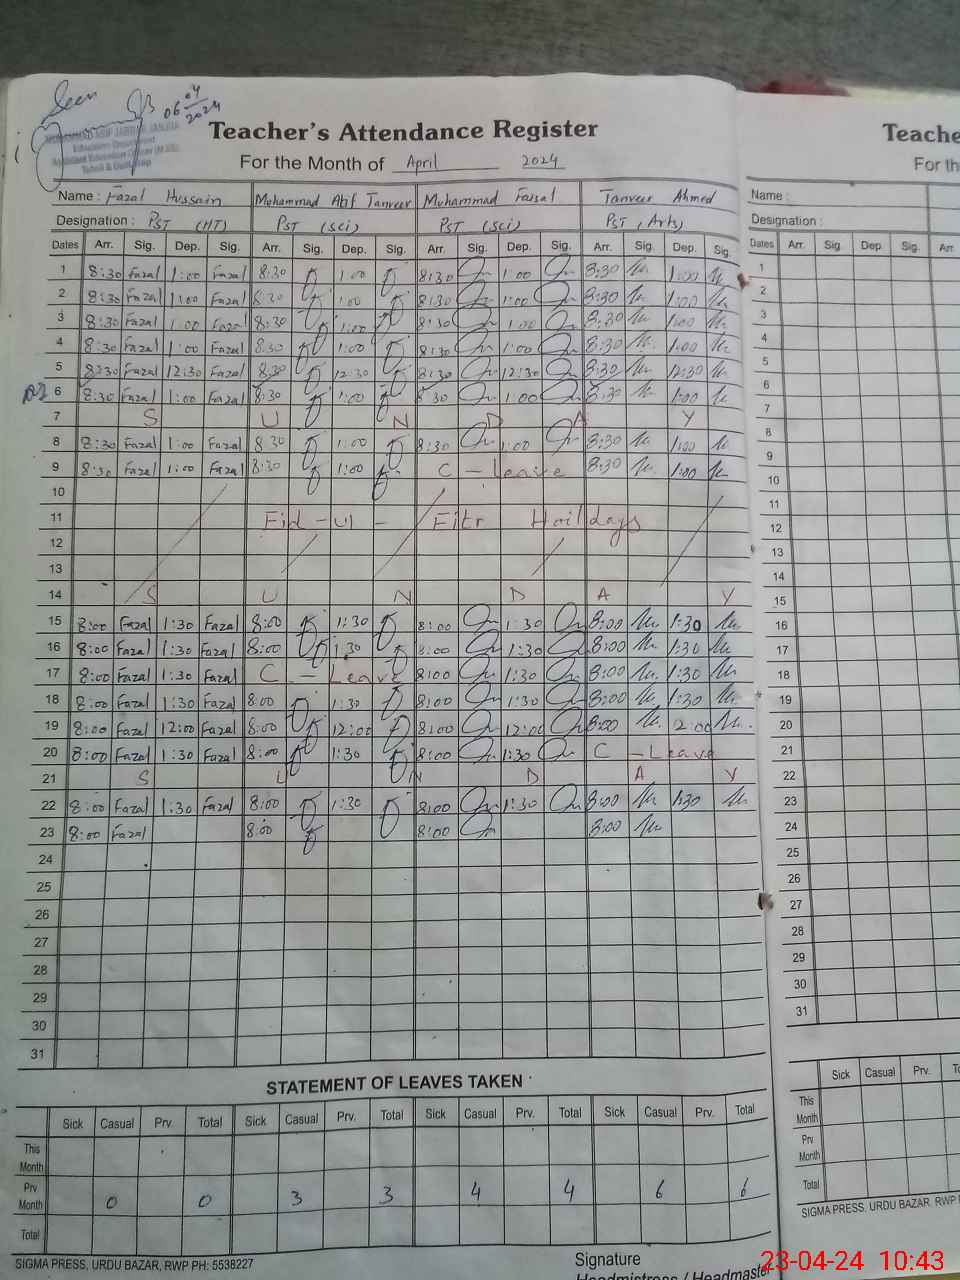 Seen
06 04 2024
MUHAMMAD ASIF JABBAR JANJUA
Education Department
Assistant Education Officer (M.EE)
Teacher's Attendance Register
For the Month of April 2024
Name : Fazal Hussain Muhammad Atif Tanveer Muhammad Faisal Tanveer Ahmed
Designation : PST (HT) PST (sci) PST (sci) PST (Arts)
Dates Arr. Sig. Dep. Sig. Arr. Sig. Dep. Sig. Arr. Sig. Dep. Sig. Arr. Sig. Dep. Sig.
1 8:30 Fazal 1:00 Fazal 8:30 1:00 8:30 1:00 8:30 1:00
2 8:30 Fazal 1:00 Fazal 8:30 1:00 8:30 1:00 8:30 1:00
3 8:30 Fazal 1:00 Fazal 8:30 1:00 8:30 1:00 8:30 1:00
4 8:30 Fazal 1:00 Fazal 8:30 1:00 8:30 1:00 8:30 1:00
5 8:30 Fazal 12:30 Fazal 8:30 12:30 8:30 12:30 8:30 12:30
6 8:30 Fazal 1:00 Fazal 8:30 1:00 8:30 1:00 8:30 1:00
7 S U N D A Y
8 8:30 Fazal 1:00 Fazal 8:30 1:00 8:30 1:00 8:30 1:00
9 8:30 Fazal 1:00 Fazal 8:30 1:00 C - Leave 8:30 1:00
10
11 Eid - ul - Fitr Hoildays
12
13
14 S U N D A Y
15 8:00 Fazal 1:30 Fazal 8:00 1:30 8:00 1:30 8:00 1:30
16 8:00 Fazal 1:30 Fazal 8:00 1:30 8:00 1:30 8:00 1:30
17 8:00 Fazal 1:30 Fazal C - Leave 8:00 1:30 8:00 1:30
18 8:00 Fazal 1:30 Fazal 8:00 1:30 8:00 1:30 8:00 1:30
19 8:00 Fazal 12:00 Fazal 8:00 12:00 8:00 12:00 8:00 12:00
20 8:00 Fazal 1:30 Fazal 8:00 1:30 8:00 1:30 C - Leave
21 S U N D A Y
22 8:00 Fazal 1:30 Fazal 8:00 1:30 8:00 1:30 8:00 1:30
23 8:00 Fazal 8:00 8:00 8:00
24
25
26
27
28
29
30
31
STATEMENT OF LEAVES TAKEN
Sick Casual Prv. Total Sick Casual Prv. Total Sick Casual Prv. Total Sick Casual Prv. Total
This Month
Prv Month 0 0 3 3 4 4 6 6
Total
SIGMA PRESS, URDU BAZAR, RWP PH: 5538227
Signature
Headmistress / Headmaster
Teache
For th
Name :
Designation :
Dates Arr. Sig. Dep. Sig. Arr
1
2
3
4
5
6
7
8
9
10
11
12
13
14
15
16
17
18
19
20
21
22
23
24
25
26
27
28
29
30
31
Sick Casual Prv. To
This Month
Prv Month
Total
SIGMA PRESS, URDU BAZAR, RWP P
23-04-24 10:43